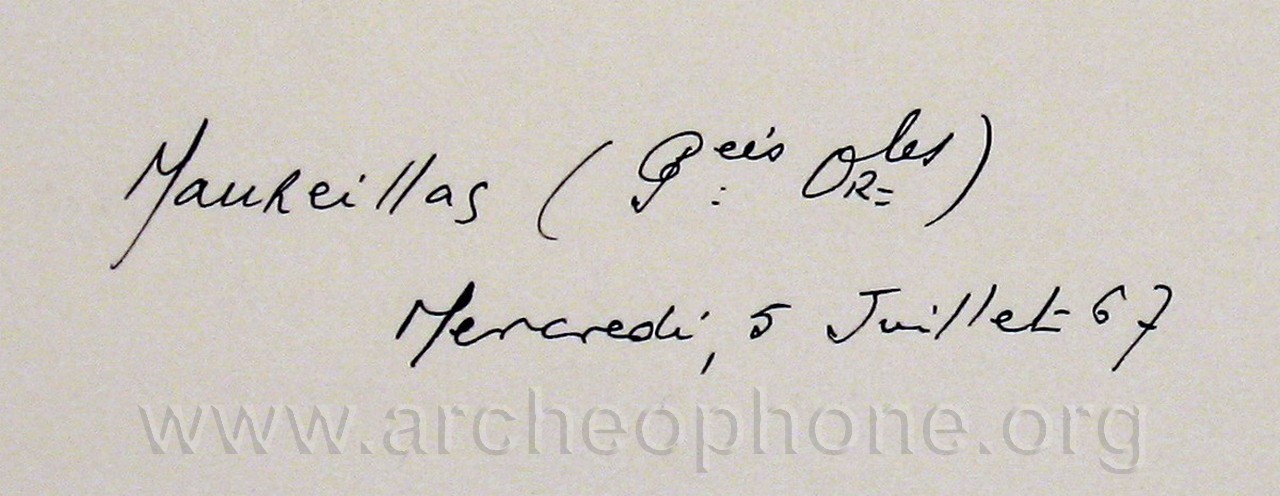 Maureillas (P.ées OR=les)
Mercredi, 5 Juillet 67
www.archeophone.org